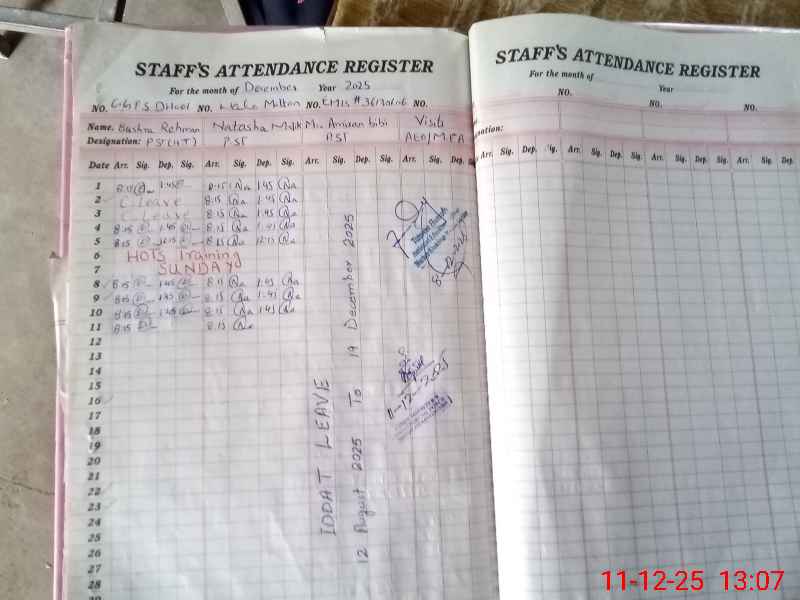 STAFF'S ATTENDANCE REGISTER
For the month of December Year 2025
NO. NO. NO. EMIS # NO.
Name. Bushra Rehman Natasha Malik Mrs Amiran bibi Visits
Designation: PST(HT) PST PST AEO/MEA
Date Arr. Sig. Dep. Sig. Arr. Sig. Dep. Sig. Arr. Sig. Dep. Sig. Arr. Sig. Dep.
1 8:15 1:45 8:15 Na 1:45 Na
2 C. Leave 8:15 Na 1:45 Na
3 C. Leave 8:15 Na 1:45 Na
4 8:15 1:45 8:15 Na 1:45 Na
5 8:15 12:15 8:15 Na 12:15 Na
6 HOTS Training
7 SUNDAY
8 8:15 1:45 8:15 Na 1:45 Na
9 8:15 1:45 8:15 Na 1:45 Na
10 8:15 1:45 8:15 Na 1:45 Na
11 8:15 8:15 Na
12
13
14
15
16
17
18
19
20
21
22
23
24
25
26
27
28
IDDAT LEAVE
12 August 2025 To 19 December 2025
11-12-2025
STAFF'S ATTENDANCE REGISTER
For the month of Year
NO. NO. NO.
Arr. Sig. Dep. Sig. Arr. Sig. Dep. Sig. Arr. Sig. Dep. Sig. Arr. Sig. Dep.
11-12-25 13:07